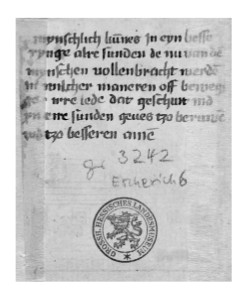 mynschlich in eyn besse
rynge alre sunden de nu van de
mynschen vollenbracht werdē
in wilcher maneren off beweg
wre lede dat geschut ind
ere sunden geues tzo beruwē
tzo besseren amē
3242
Escherich 6
GROSSH. HESSISCHES LANDESMUSEUM